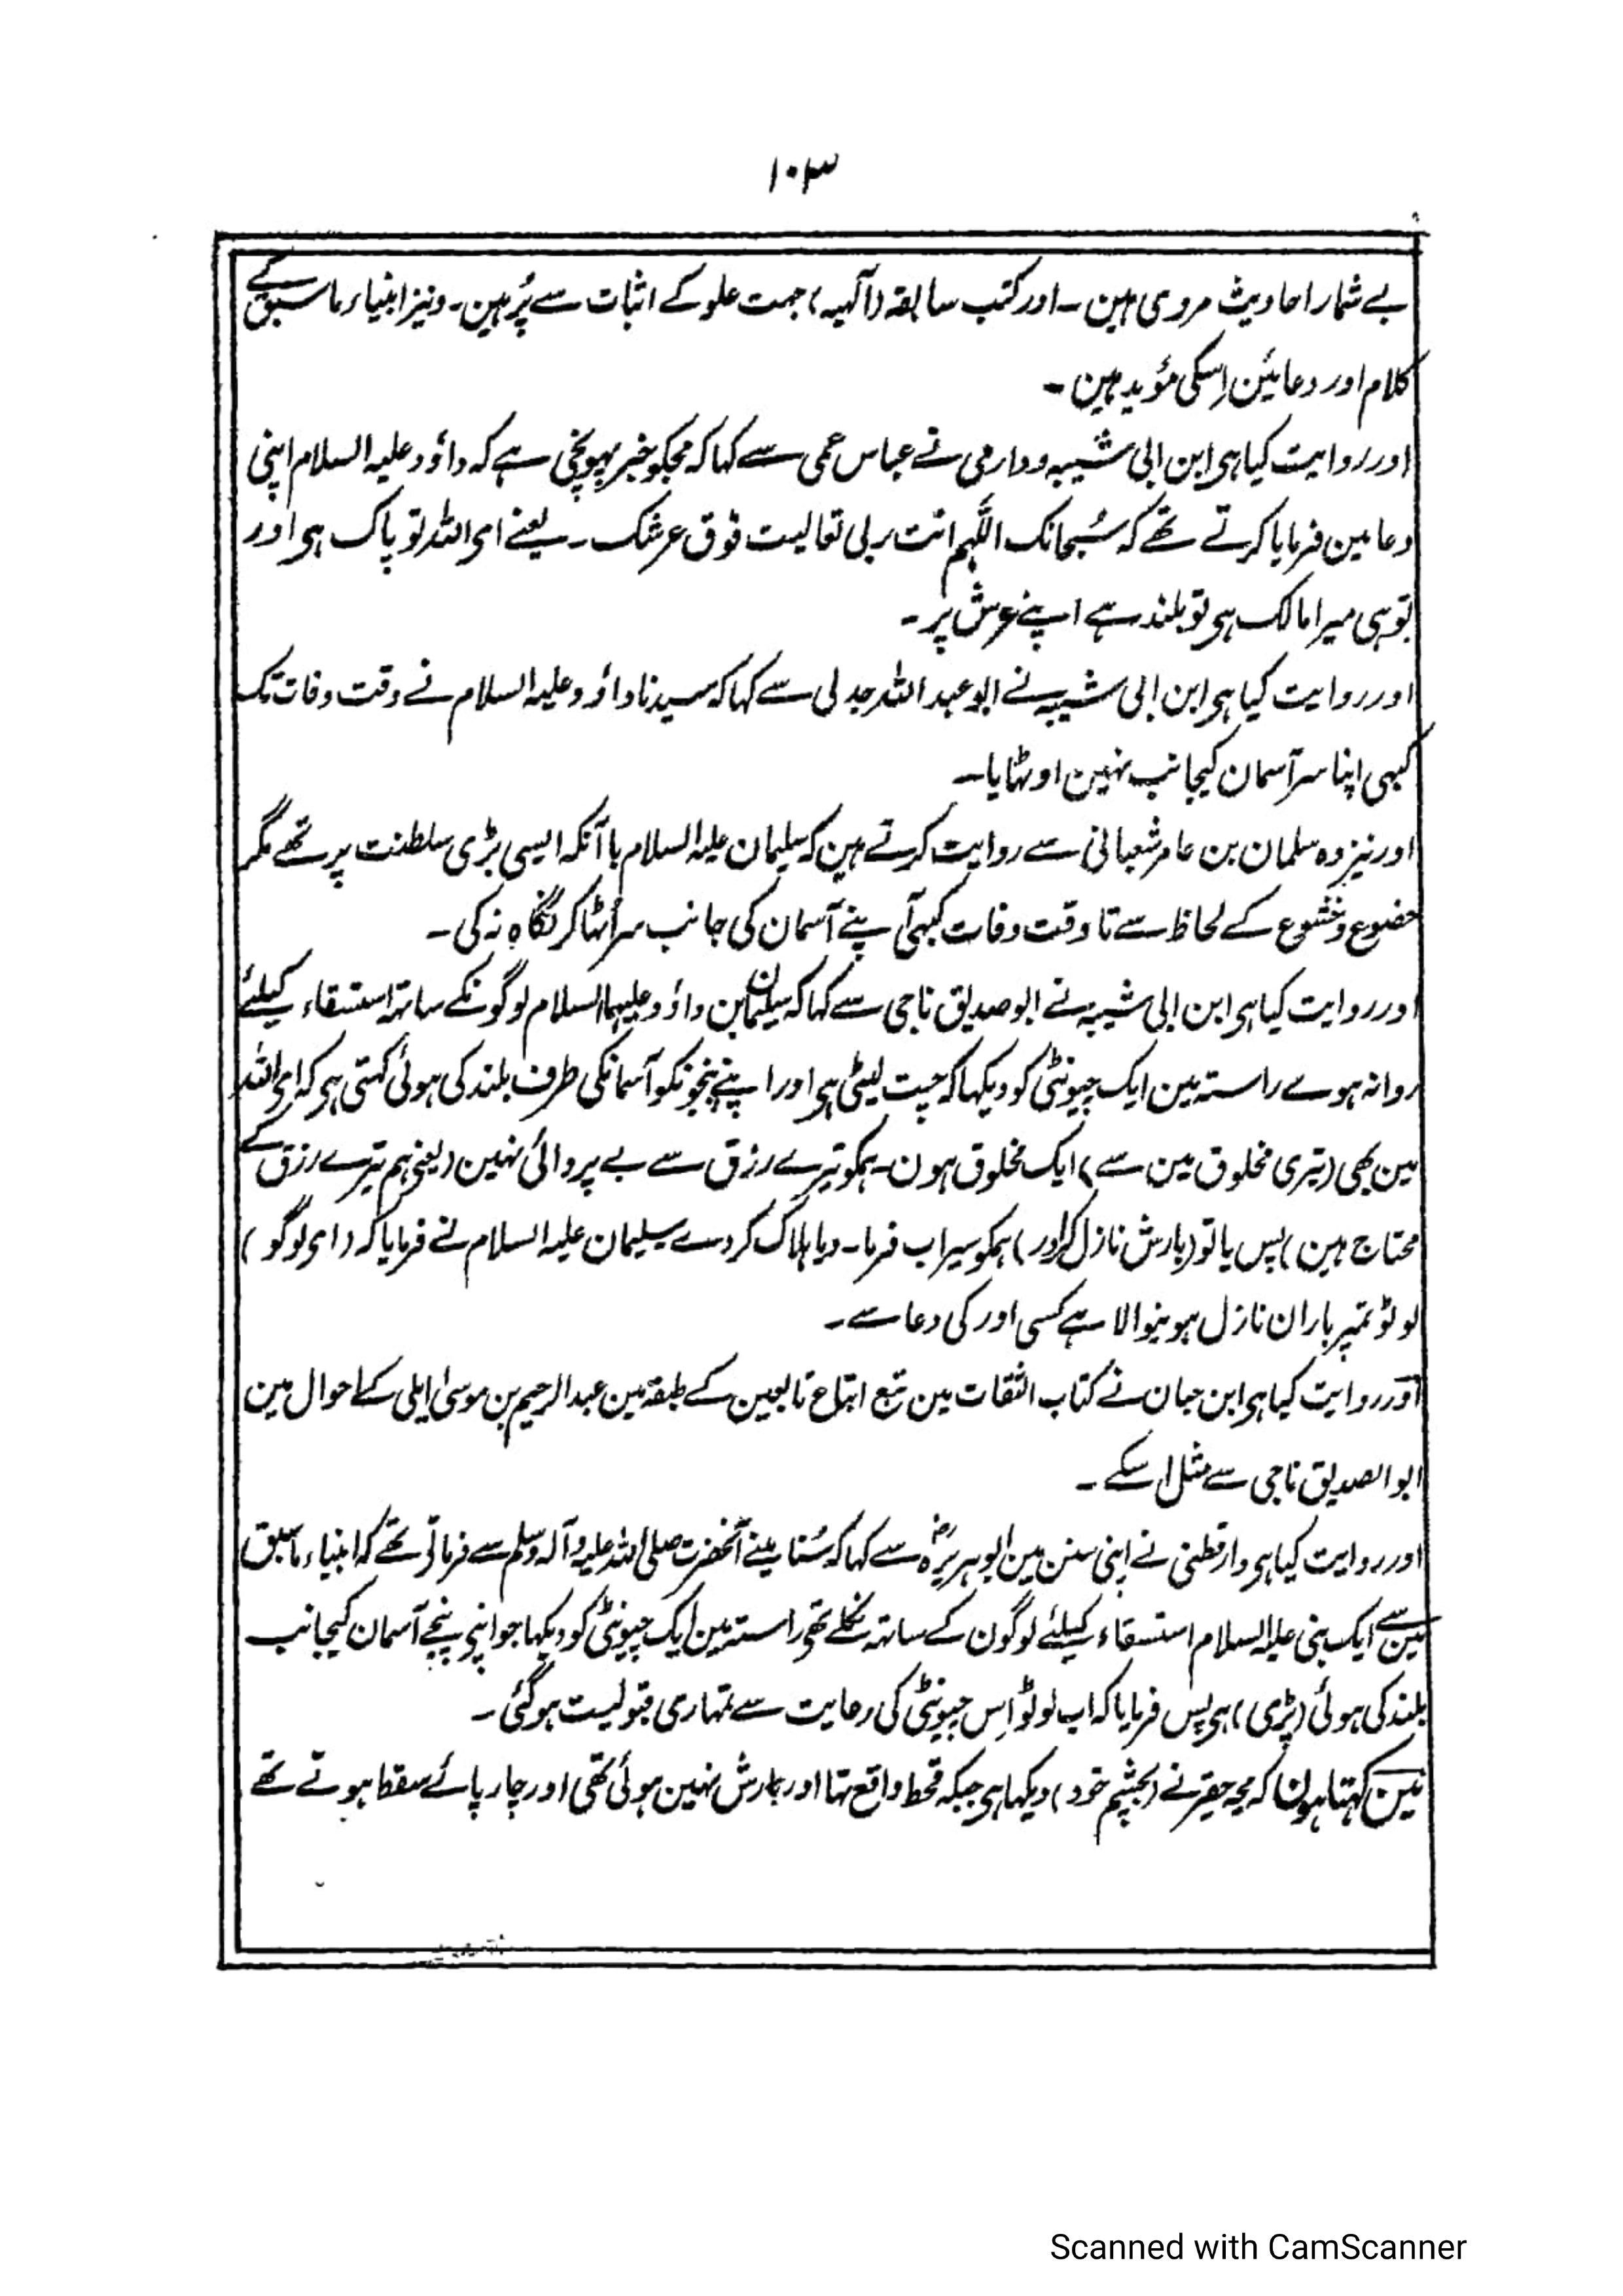 ۱۰۳
بے شمار احادیث مروی ہین ۔ اور کتب سابقہ (آلہیہ) جہت علو کے اثبات سے پُر ہین ۔ ونیز انبیاء ماسبق کے
کلام اور دعائین اِسکی مؤید ہین ۔
اور روایت کیا ہی ابن ابی شیبہ ودارمی نے عباس عمی سے کہا کہ مجکو خبر پہونچی ہے کہ داؤد علیہ السلام اپنی
دعا مین فرمایا کرتے تھے کہ سُبحانک اللّٰہم انت ربی تعالیت فوق عرشک ۔ یعنے ای اللہ تو پاک ہی اور
تو ہی میرا مالک ہی تو بلند ہے اپنے عرش پر ۔
اور روایت کیا ہی ابن ابی شیبہ نے ابو عبد اللہ جدلی سے کہا کہ سیدنا داؤد علیہ السلام نے وقت وفات تک
کبہی اپنا سر آسمان کیجانب نہین اوٹہایا ۔
اور نیز وہ سلمان بن عامر شعبانی سے روایت کرتے ہین کہ سلیمان علیہ السلام باآنکہ ایسی بڑی سلطنت پر تھے مگر
خضوع وخشوع کے لحاظ سے تا وقت وفات کبہی آپنے آسمان کی جانب سر اُٹہا کر نگاہ نہ کی ۔
اور روایت کیا ہی ابن ابی شیبہ نے ابو صدیق ناجی سے کہا کہ سلیمان بن داؤد علیہما السلام لوگونکے ساتہ استسقاء کیلئے
روانہ ہوے راستہ مین ایک چیونٹی کو دیکہا کہ چت لیٹی ہی اور اپنے پنجونکو آسمانکی طرف بلند کی ہوئی کہتی ہی کہ ای اللہ
مین بھی (تیری مخلوق مین سے) ایک مخلوق ہون ۔ ہمکو تیرے رزق سے بے پروائی نہین (یعنی ہم تیرے رزق کے
محتاج ہین) پس یا تو (بارش نازل کر اور) ہمکو سیراب فرما ۔ ویا ہلاک کر دے سلیمان علیہ السلام نے فرمایا کہ (ای لوگو)
لوٹو تمپر باران نازل ہونیوالا ہے کسی اور کی دعا سے ۔
اور روایت کیا ہی ابن حبان نے کتاب الثقات مین تبع اتباع تابعین کے طبقہ مین عبد الرحیم بن موسیٰ ایلی کے احوال مین
ابو الصدیق ناجی سے مثل اسکے ۔
اور روایت کیا ہی دارقطنی نے اپنی سنن مین ابو ہریرہؓ سے کہا کہ سُنا مینے آنحضرت صلی اللہ علیہ وآلہ وسلم سے فرماتی تھے کہ انبیاء ماسبق
مین سے ایک نبی علیہ السلام استسقاء کیلئے لوگون کے ساتہ نکلے تھی راستہ مین ایک چیونٹی کو دیکہا جو اپنی پنجے آسمان کیجانب
بلند کی ہوئی (پڑی) ہی پس فرمایا کہ اب لوٹو اِس چیونٹی کی رعایت سے تمہاری قبولیت ہوگئی ۔
مین کہتا ہون کہ مجہ حقیر نے (بچشم خود) دیکہا ہی جبکہ قحط واقع تہا اور بارش نہین ہوئی تھی اور چار پائے سقط ہوتے تھے
Scanned with CamScanner